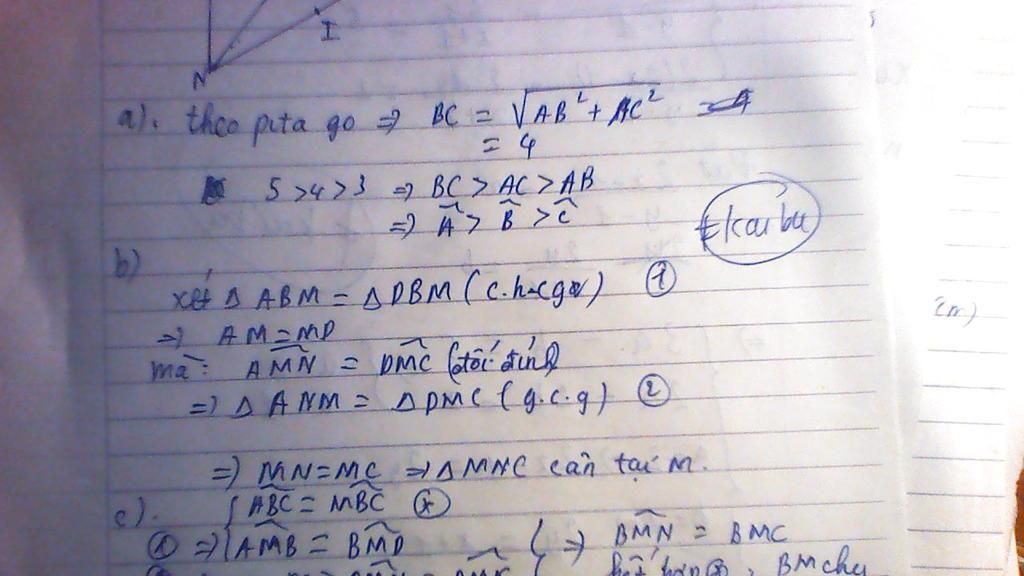 N
I
a). theo pita go ⇒ BC = √AB² + AC²
= 4
5 > 4 > 3 ⇒ BC > AC > AB
⇒ Â > B̂ > Ĉ
b)
xét Δ ABM = Δ DBM ( c.h-cgv) ①
⇒ AM = MD
mà: AMN̂ = DMĈ (đối đỉnh)
⇒ Δ ANM = Δ DMC ( g.c.g) ②
⇒ MN = MC ⇒ Δ MNC cân tại M.
c). { ABĈ = MBĈ (*)
① ⇒ AMB̂ = BMD̂ ⇒ BMN̂ = BMC
BM
(m)